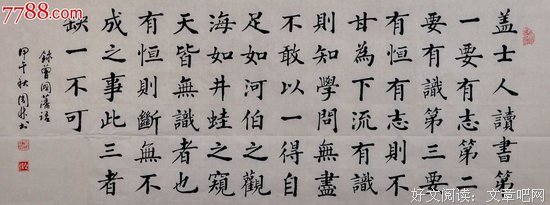 7788.com
盖士人讀書第
一要有志第二
要有識第三要
有恒有志則不
甘為下流有識
則知學問無盡
不敢以一得自
足如河伯之觀
海如井蛙之窺
天皆無識者也
有恒則斷無不
成之事此三者
缺一不可
錄曾國藩語
甲午秋周书
好文阅读:文章吧网